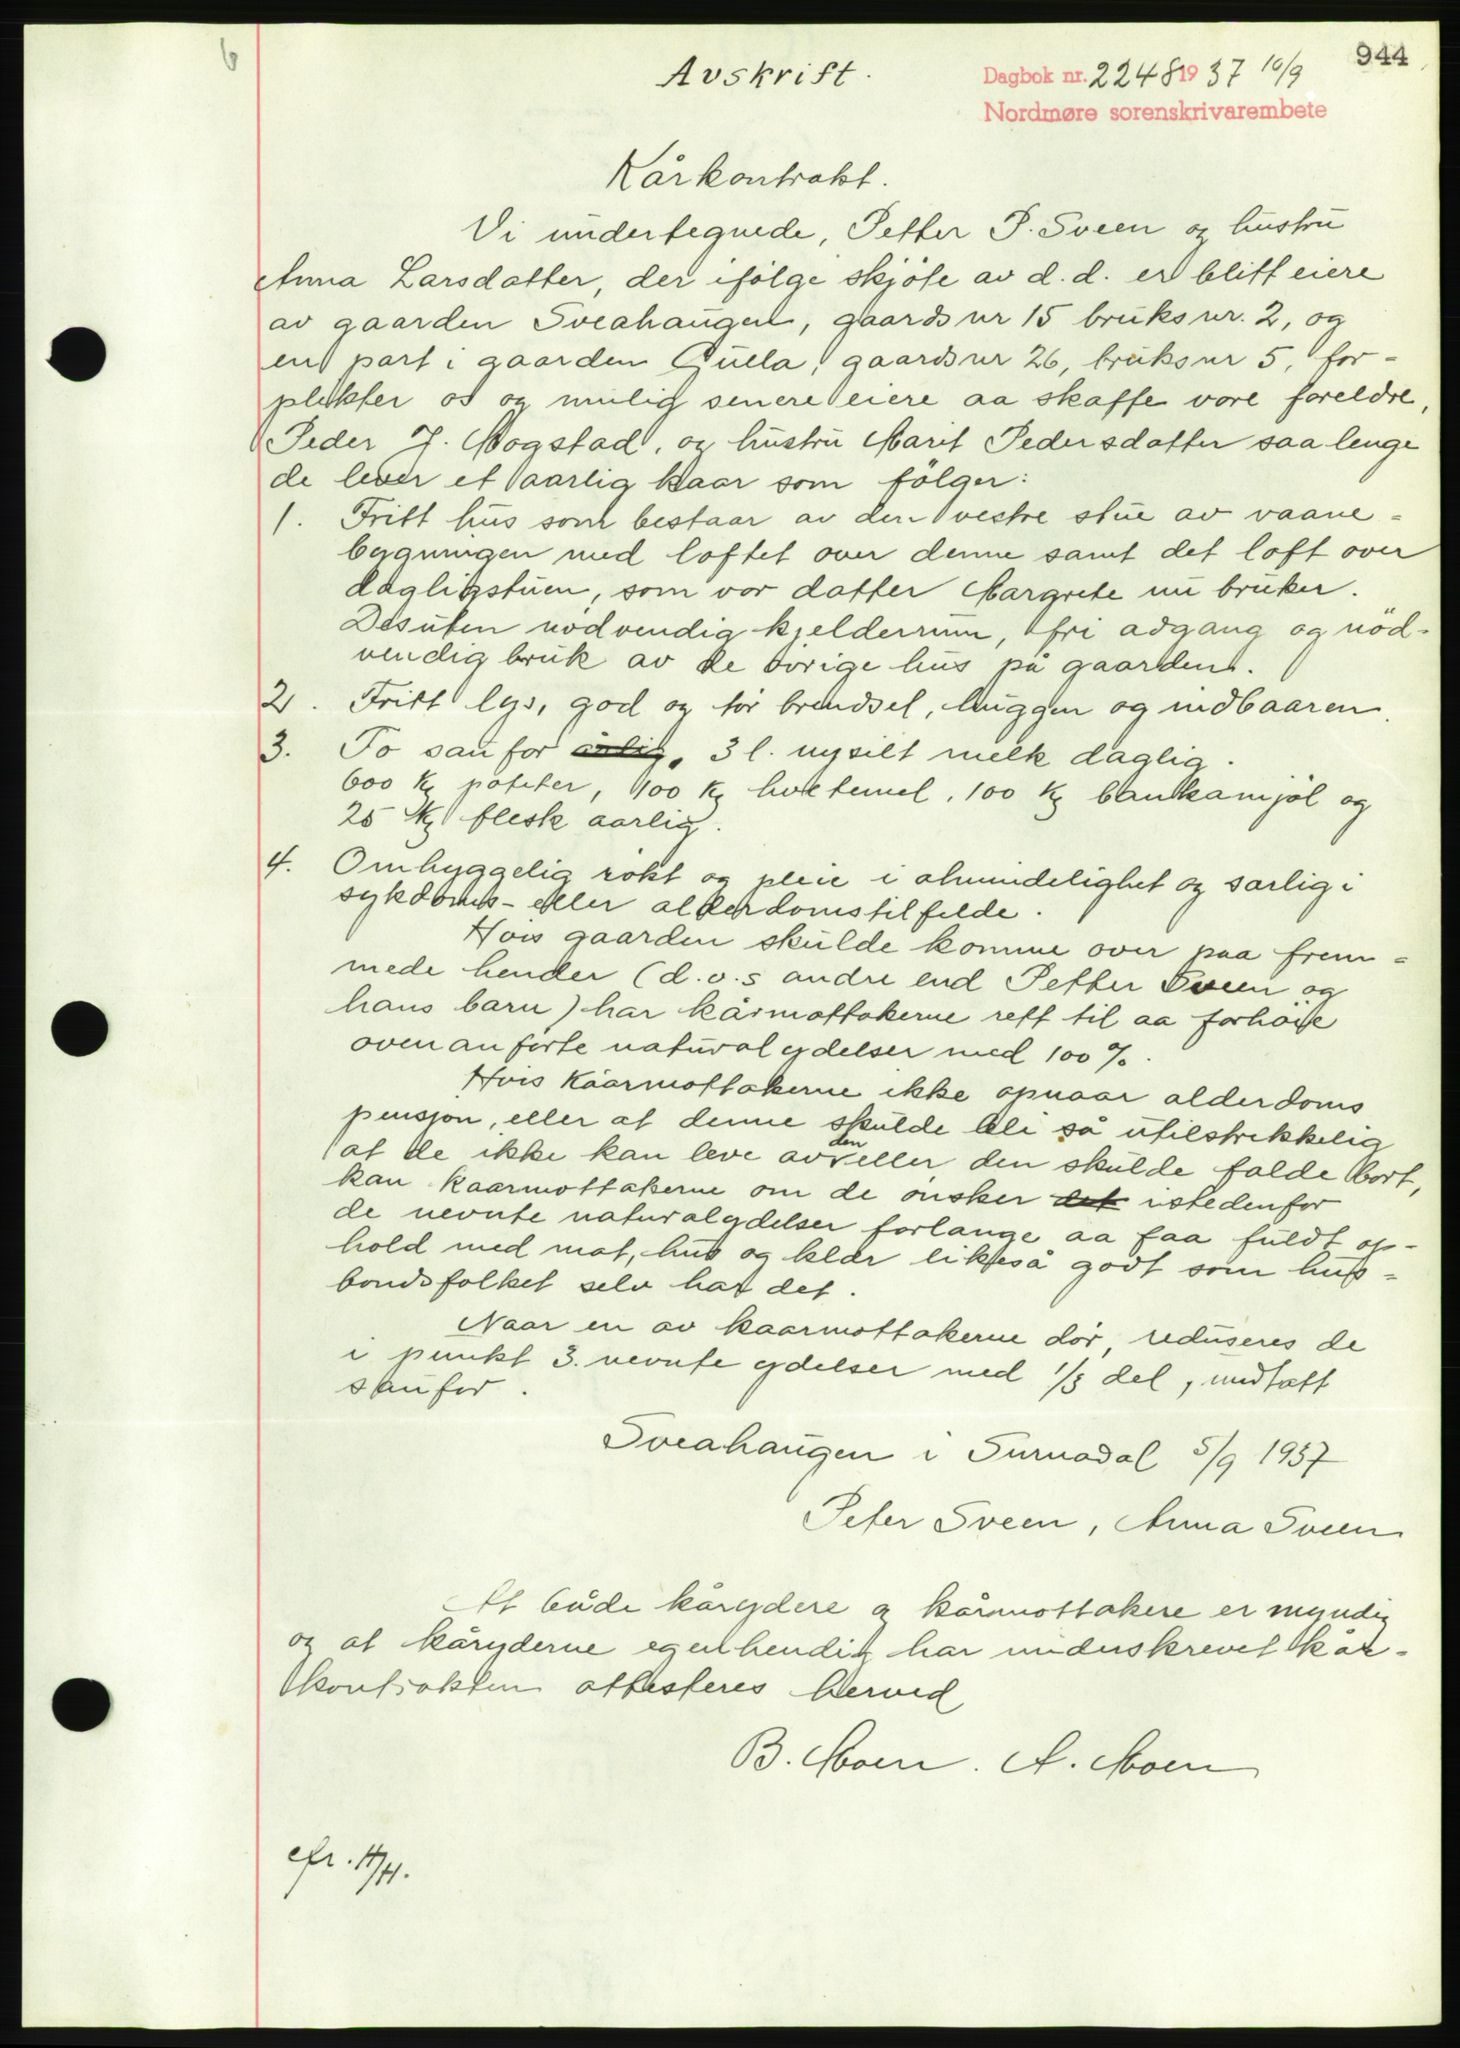 6
944
Avskrift.
Dagbok nr. 2248 1937 10/9
Nordmøre sorenskrivarembete
Kårkontrakt.
Vi undertegnede, Petter P. Sveen og hustru
Anna Larsdatter, der ifölge skjöte av d.d. er blitt eiere
av gaarden Sveahaugen, gaards nr 15 bruks nr. 2, og
en part i gaarden Gulla, gaardsnr 26, bruksnr 5, for-
plikter os og mulig senere eiere aa skaffe vore foreldre,
Peder J. Mogstad, og hustru Marit Pedersdatter saa lenge
de lever et aarlig kaar som fölger:
1. Fritt hus som bestaar av den vestre stue av vaane-
bygningen med loftet over denne samt det loft over
dagligstuen, som vor datter Margrete nu bruker.
Desuten nödvendig kjelderrum, fri adgang og nöd-
vendig bruk av de övrige hus på gaarden.
2. Fritt lys, god og tör brendsel, huggen og indbaaren.
3. To saufor årlig, 3 l. nysilt melk daglig.
600 kg poteter, 100 kg hvetemel, 100 kg bankamjöl og
25 kg flesk aarlig.
4. Omhyggelig rökt og pleie i almindelighet og sarlig i
sykdoms- eller alderdomstilfelde.
Hvis gaarden skulde komme over paa frem-
mede hender (d.v.s andre end Petter Sveen og
hans barn) har kårmottakerne rett til aa forhöie
ovenanförte naturalydelser med 100 %.
Hvis kaarmottakerne ikke opnaar alderdoms
pensjon, eller at denne skulde bli så utilstrekkelig
at de ikke kan leve av den eller den skulde falde bort,
kan kaarmottakerne om de önsker det istedenfor
de nevnte naturalydelser forlange aa faa fuldt op-
hold med mat, hus og klær likeså godt som hus-
bondsfolket selv har det.
Naar en av kaarmottakerne dör, reduseres de
i punkt 3. nevnte ydelser med 1/3 del, undtatt
saufor.
Sveahaugen i Surnadal 5/9 1937
Peter Sveen, Anna Sveen
At både kårydere og kårmottakere er myndig
og at kåryderne egenhendig har underskrevet kår-
kontrakten attesteres herved
B. Moen. A. Moen